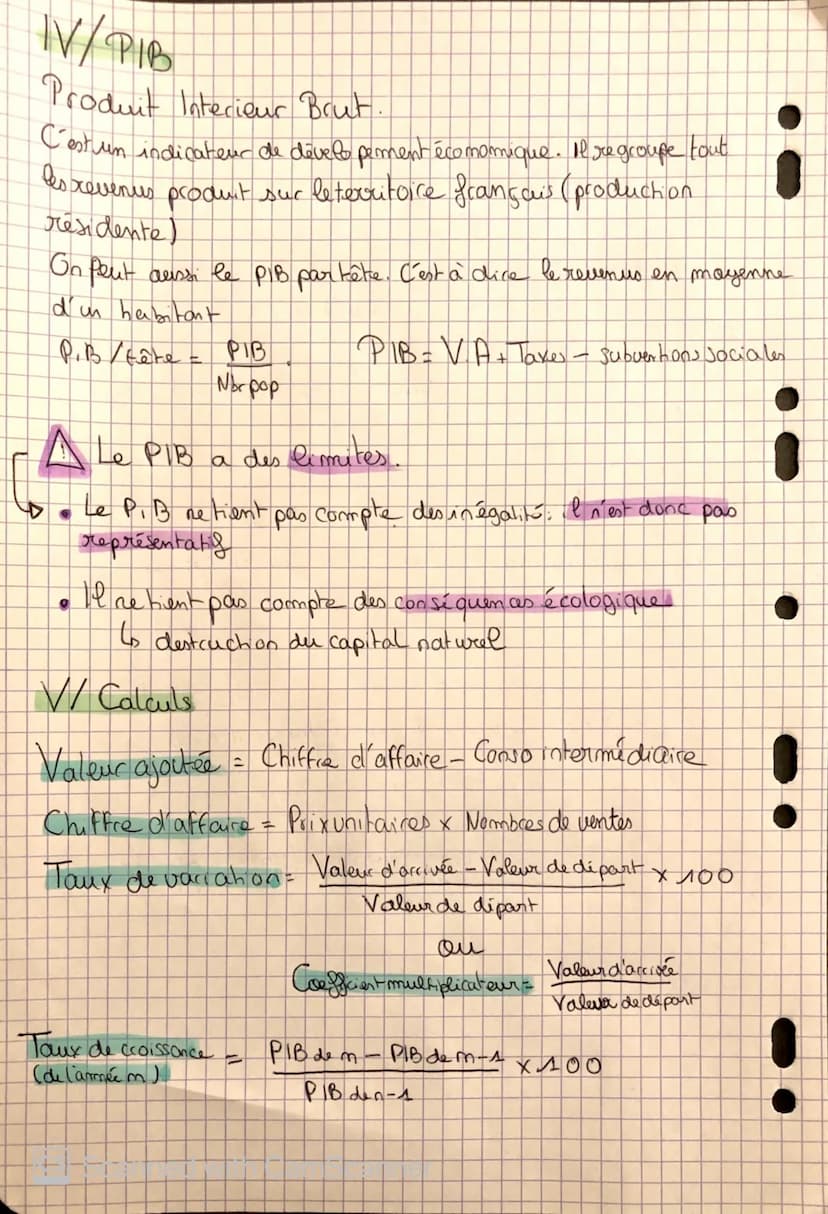 IV/ PIB
Produit Interieur Brut.
C'est un indicateur de développement économique. Il regroupe tout
les revenus produit sur le territoire français (production
résidente)
On peut aussi le PIB par tête. C'est à dire le revenus en moyenne
d'un habitant
P.B/tête = PIB / Nbr pop . PIB = V.A + Taxes - subventions sociales
⚠ Le PIB a des limites.
• Le P.I.B ne tient pas compte des inégalité. il n'est donc pas
représentatif
• Il ne tient pas compte des conséquences écologique
↳ destruction du capital naturel
V/ Calculs
Valeur ajoutée = Chiffre d'affaire - Conso intermédiaire
Chiffre d'affaire = Prix unitaires x Nombres de ventes
Taux de variation = Valeur d'arrivée - Valeur de départ x 100
Valeur de départ
ou
Coefficient multiplicateur = Valeur d'arrivée
Valeur de départ
Taux de croissance = PIB de n - PIB de n-1 x 100
(de l'année n) PIB de n-1
Scanned with CamScanner